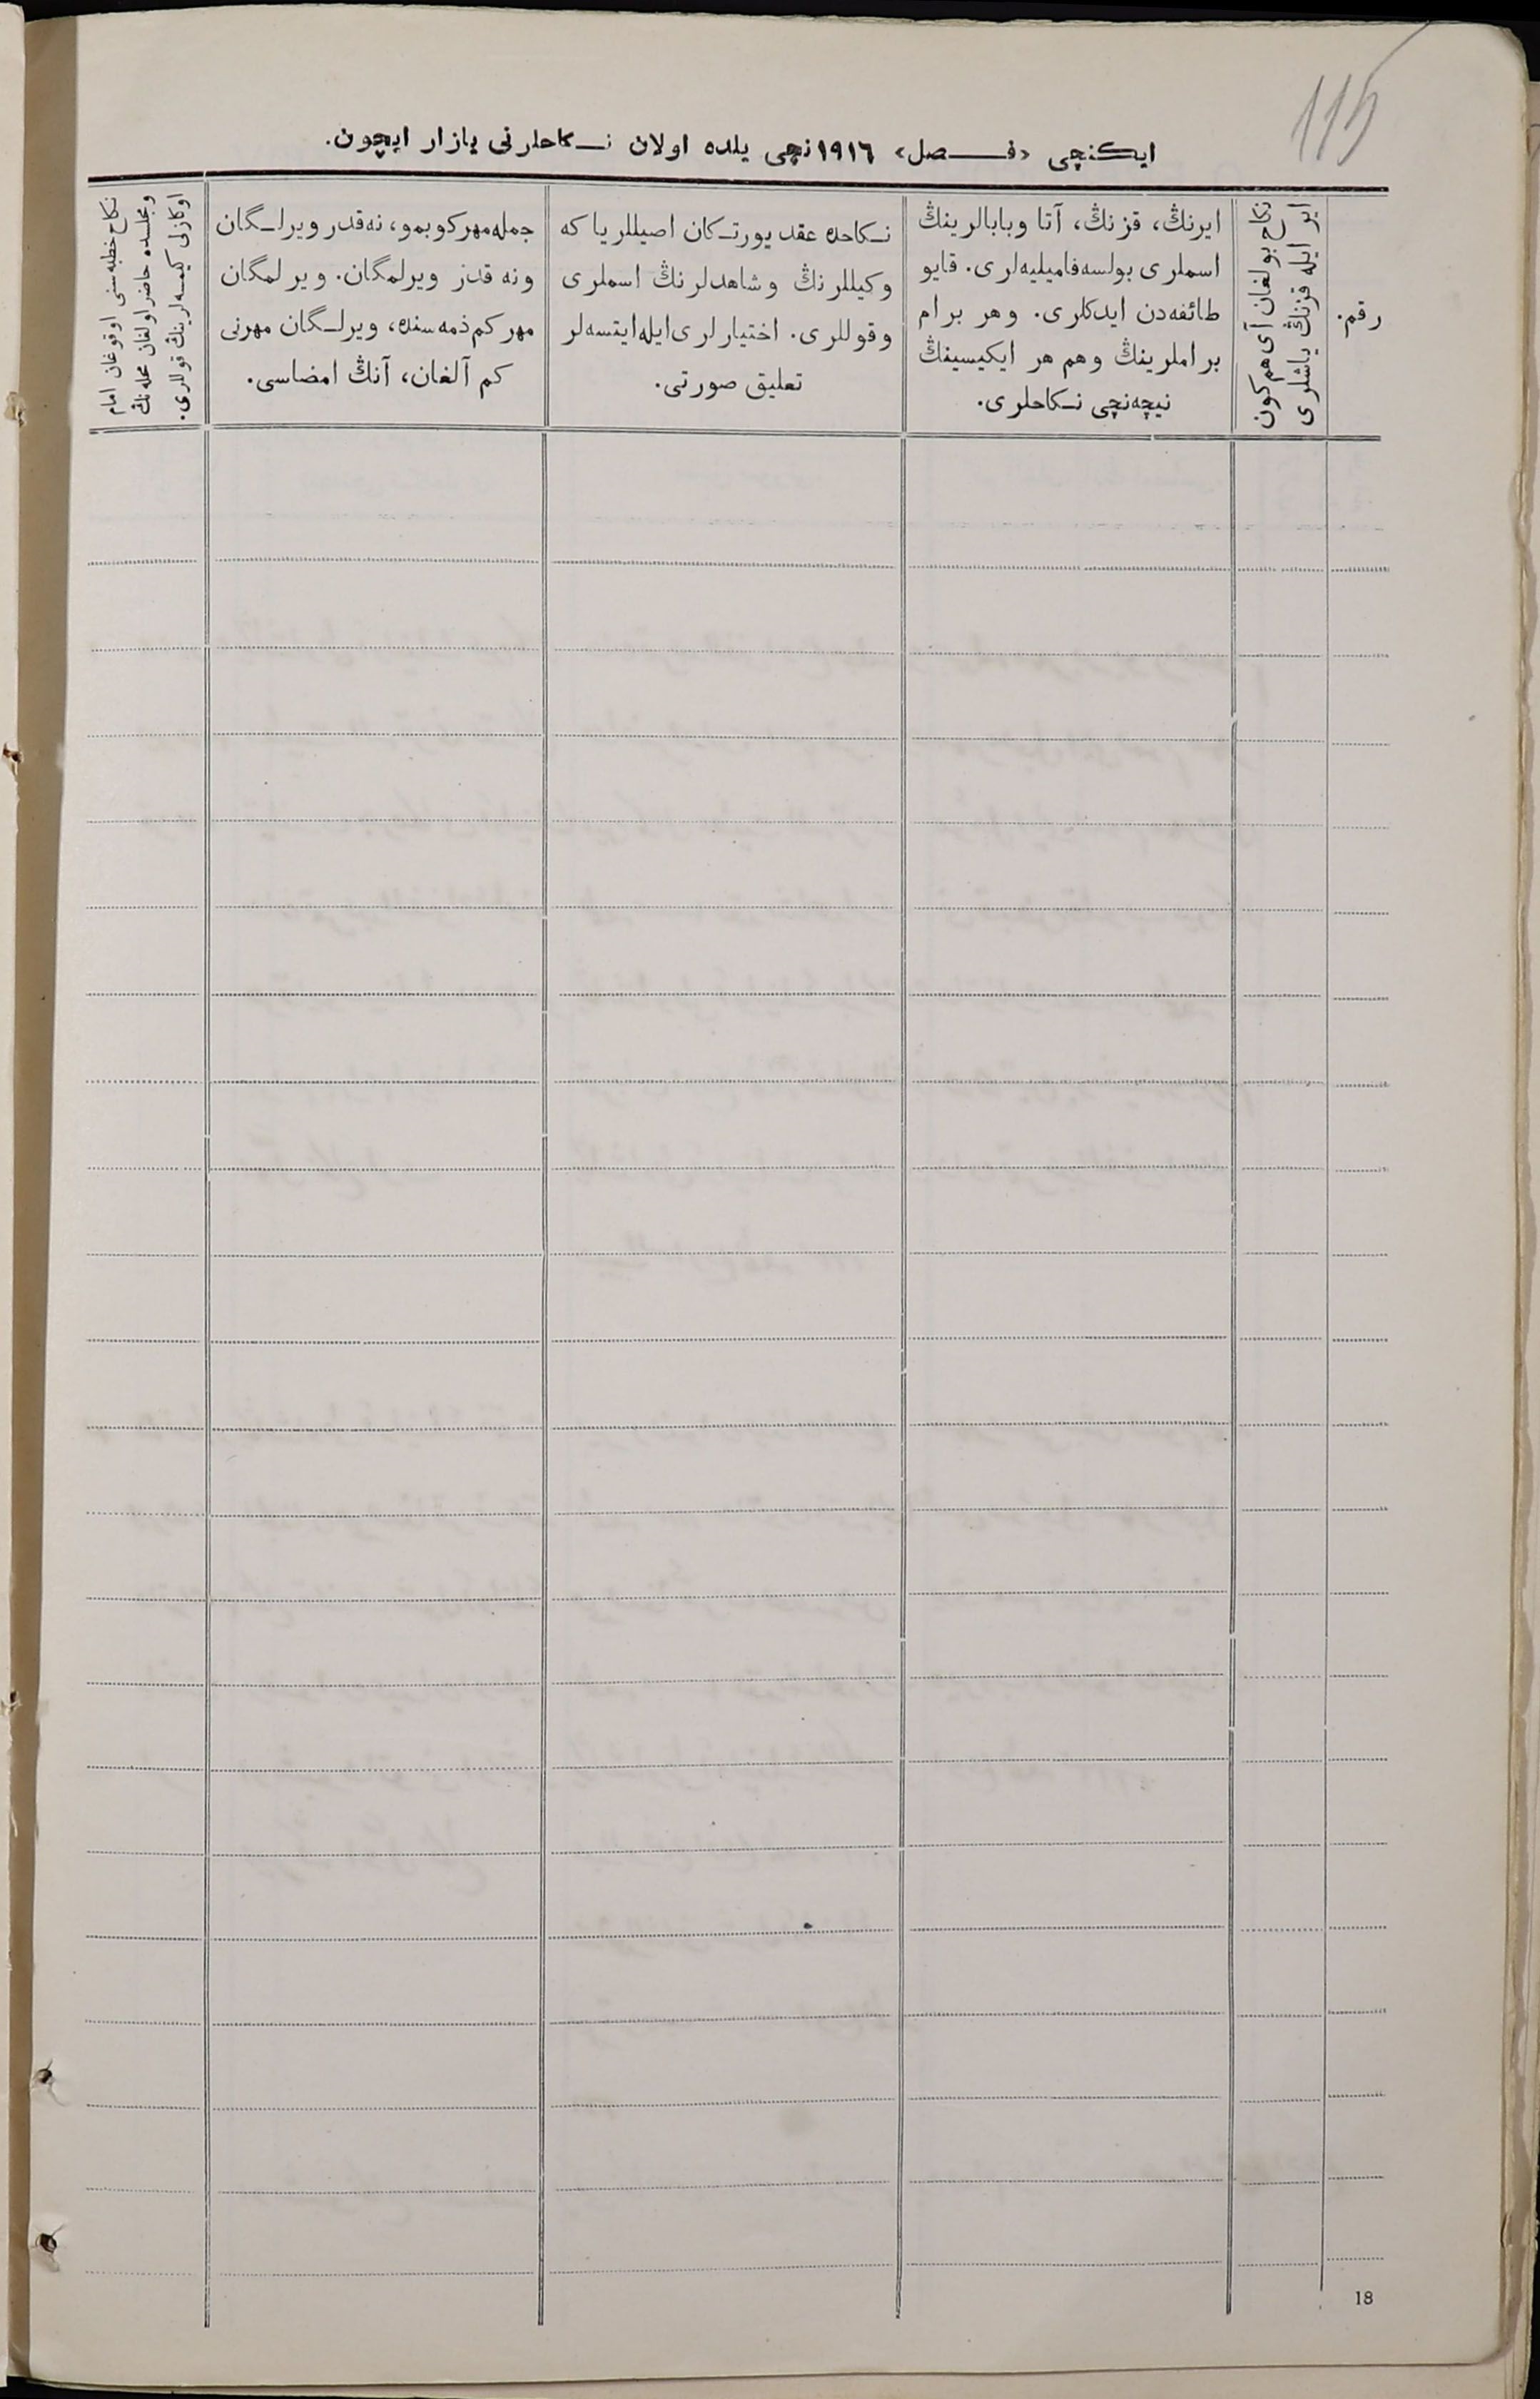 115
ایكنچی «فصل» ١٩١٦نچی یلده اولان نكاحلرنی یازار ایچون.
رقم.
ایر ایله قزنڭ یاشلری
نكاح بولغان آی هم كون
ایرنڭ، قزنڭ، آتا وبابالرینڭ
اسملری بولسه فامیلیه‌لری. قایو
طائفه‌دن ایدكلری. وهر برام
براملرینڭ وهم هر ایكیسینڭ
نیچه‌نچی نكاحلری.
نكاحده عقد یورتكان اصیللر یا كه
وكیللرنڭ وشاهدلرنڭ اسملری
وقوللری. اختیارلری ایله ایتسه‌لر
تعلیق صورتی.
جمله مهر كوبمو، نه‌قدر ویرلگان
ونه قدر ویرلمگان. ویرلمگان
مهر كم ذمه‌سنده، ویرلگان مهرنی
كم آلغان، آنڭ امضاسی.
نكاح خطبه‌سنی اوقوغان امام
ومجلسده حاضر اولغان محله‌نڭ
اوكازلی كیسه‌لرینڭ قوللری.
18